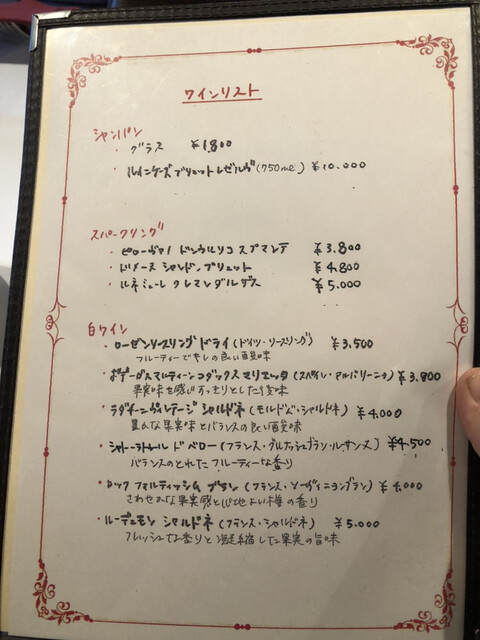 ワインリスト
シャンパン
・グラス ¥1,800
・ルイニケーズブリュットレゼルヴ(750ml) ¥10.000
スパークリング
・ドンウルリコ スプマンテ ¥3.800
・ドメーヌ シャンドンブリュット ¥4.800
・ルネミューレ クレマンダルザス ¥5.000
白ワイン
・ローゼンリースリング ドライ(ドイツ・リースリング) ¥3,500
フルーティーでキレの良い酸味
・ボデーガスマルティーンコダックス マリエッタ(スペイン・アルバリーニョ) ¥3.800
果実味を感じすっきりとした後味
・ラダチーニヴィンテージ シャルドネ(モルドバ・シャルドネ) ¥4,000
豊んな果実味とバランスの良い酸味
・シャトーラトール ド ベロー(フランス・グルナッシュブラン・ルーサンヌ) ¥4,500
バランスのとれたフルーティーな香り
・ロック フォルティッシム ブラン(フランス・ソーヴィニヨンブラン) ¥4,000
さわやかな果実感と心地よい樽の香り
・ルーデュモン シャルドネ(フランス・シャルドネ) ¥5.000
フレッシュな香りと凝縮した果実の旨味